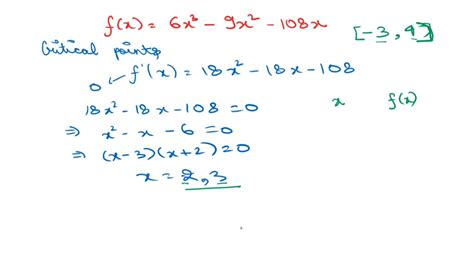 f(x) = 6x³ - 9x² - 108x
[-3, 4]
Critical points,
0 ↙ f'(x) = 18x² - 18x - 108
18x² - 18x - 108 = 0
x f(x)
⇒ x² - x - 6 = 0
⇒ (x-3)(x+2) = 0
x = 2, 3